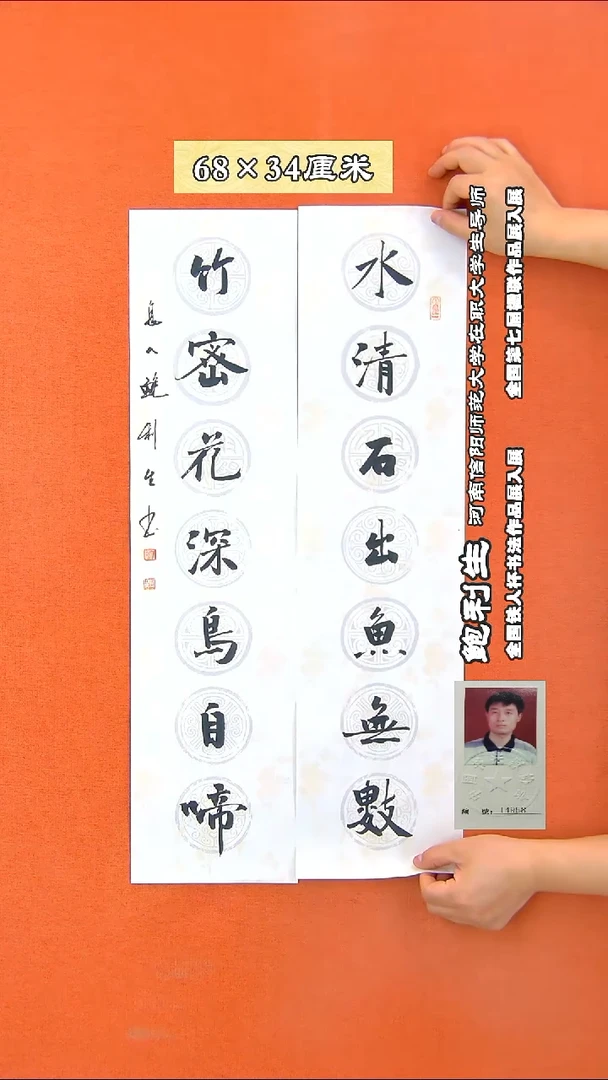 68×34厘米
水清石出魚無數
竹密花深鳥自啼
鮑利生书
鲍利生
河南信阳师范大学在职大学生导师
全国第七届楹联作品展入展
全国铁人杯书法作品展入展